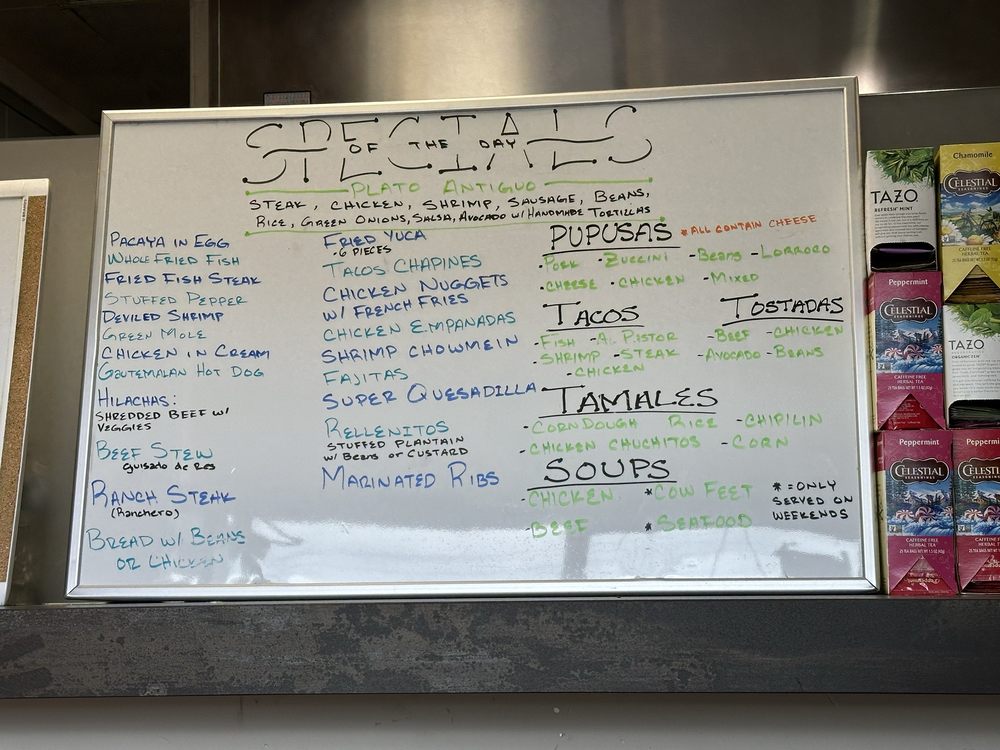 SPECIALS
OF THE DAY
PLATO ANTIGUO
STEAK, CHICKEN, SHRIMP, SAUSAGE, BEANS,
RICE, GREEN ONIONS, SALSA, AVOCADO W/ HANDMADE TORTILLAS
PACAYA IN EGG
WHOLE FRIED FISH
FRIED FISH STEAK
STUFFED PEPPER
DEVILED SHRIMP
GREEN MOLE
CHICKEN IN CREAM
GUTEMALAN HOT DOG
HILACHAS:
SHREDDED BEEF W/
VEGGIES
BEEF STEW
guisado de Res
RANCH STEAK
(Ranchero)
BREAD W/ BEANS
OR CHICKEN
FRIED YUCA
-6 PIECES
TACOS CHAPINES
CHICKEN NUGGETS
W/ FRENCH FRIES
CHICKEN EMPANADAS
SHRIMP CHOWMEIN
FAJITAS
SUPER QUESADILLA
RELLENITOS
STUFFED PLANTAIN
W/ BEANS OR CUSTARD
MARINATED RIBS
PUPUSAS *ALL CONTAIN CHEESE
-PORK -ZUCCINI -BEANS -LORRORO
-CHEESE -CHICKEN -MIXED
TACOS
-FISH -AL PASTOR
-SHRIMP -STEAK
-CHICKEN
TOSTADAS
-BEEF -CHICKEN
-AVOCADO -BEANS
TAMALES
-CORN DOUGH RICE -CHIPILIN
-CHICKEN CHUCHITOS -CORN
SOUPS
-CHICKEN *COW FEET
-BEEF *SEAFOOD
* = ONLY
SERVED ON
WEEKENDS
TAZO
REFRESH MINT
Chamomile
CELESTIAL
SEASONINGS
CAFFEINE FREE
HERBAL TEA
Peppermint
CELESTIAL
SEASONINGS
CAFFEINE FREE
HERBAL TEA
TAZO
ORGANIC ZEN
Peppermint
CELESTIAL
SEASONINGS
CAFFEINE FREE
HERBAL TEA
Peppermint
CELESTIAL
SEASONINGS
CAFFEINE FREE
HERBAL TEA